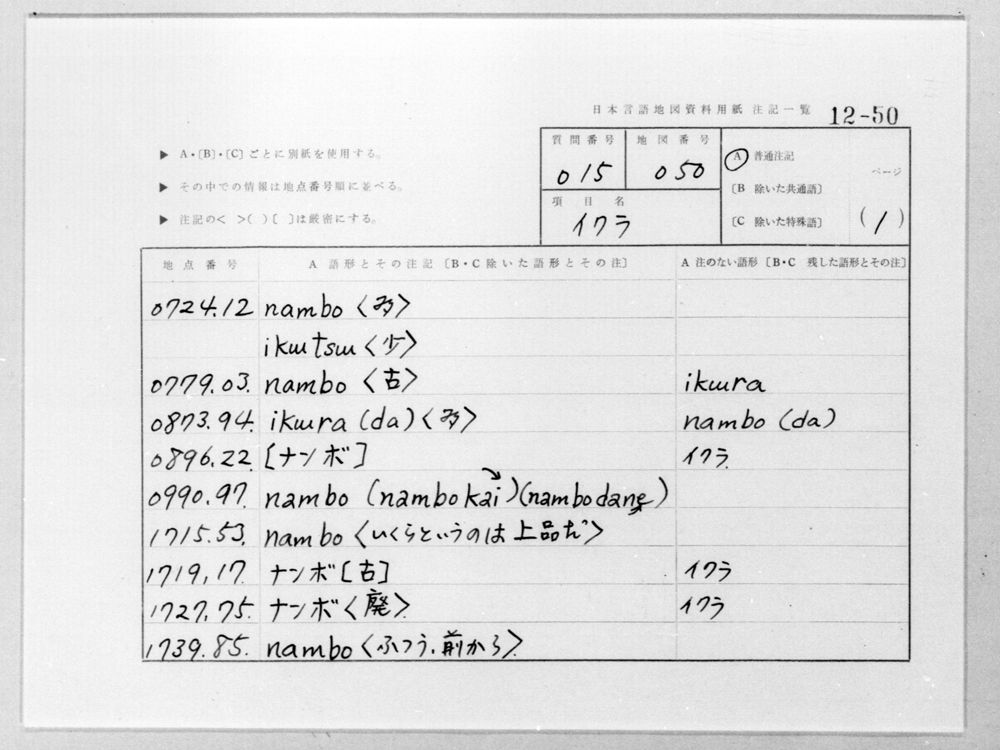 日本言語地図資料用紙 注記一覧 12-50
▶ A・〔B〕・〔C〕ごとに別紙を使用する。
▶ その中での情報は地点番号順に並べる。
▶ 注記の< >( )[ ]は厳密にする。
質問番号 015
地図番号 050
項目名 イクラ
A 普通注記
〔B 除いた共通語〕
〔C 除いた特殊語〕
ページ (1)
地点番号 A 語形とその注記〔B・C 除いた語形とその注〕 A 注のない語形〔B・C 残した語形とその注〕
0724.12 nambo〈多〉
ikɯtsɯ〈少〉
0779.03. nambo〈古〉 ikɯra
0873.94. ikɯra (da)〈多〉 nambo (da)
0896.22. [ナンボ] イクラ
0990.97. nambo (nambo kai)(nambo dane)
1715.53. nambo〈いくらというのは上品だ〉
1719.17. ナンボ[古] イクラ
1727.75. ナンボ〈廃〉 イクラ
1739.85. nambo〈ふつう.前から〉